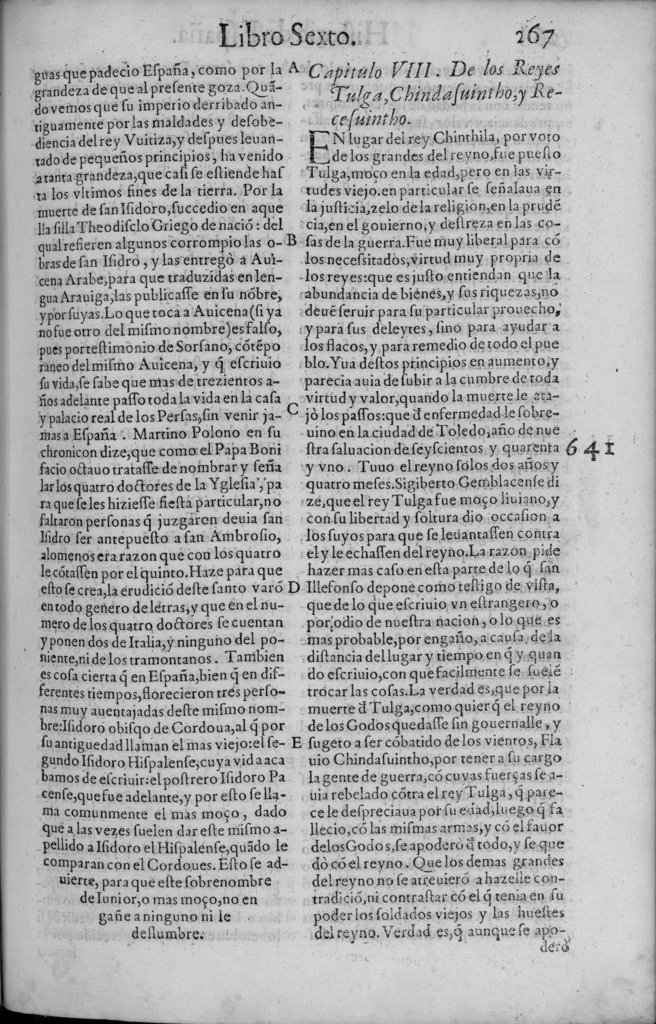 Libro Sexto. 267
guas que padecio España, como por la
grandeza de que al presente goza. Quã-
do vemos que su imperio derribado an-
tiguamente por las maldades y desobe-
diencia del rey Vuitiza, y despues leuan-
tado de pequeños principios, ha venido
a tanta grandeza, que casi se estiende haſ
ta los vltimos fines de la tierra. Por la
muerte de san Isidoro, succedio en aque
lla silla Theodisclo Griego de nació: del
qual refieren algunos corrompio las o-
bras de san Isidro, y las entregò a Aui-
cena Arabe, para que traduzidas en len-
gua Arauiga, las publicasse en su nõbre,
y por suyas. Lo que toca a Auicena (si ya
no fue otro del mismo nombre) es falso,
pues por testimonio de Sorsano, cõtẽpo
raneo del mismo Auicena, y q̃ escriuio
su vida, se sabe que mas de trezientos a-
ños adelante passo toda la vida en la casa
y palacio real de los Persas, sin venir ja-
mas a España. Martino Polono en su
chronicon dize, que como el Papa Boni
facio octauo tratasse de nombrar y seña
lar los quatro doctores de la Yglesia, pa
ra que se les hiziesse fiesta particular, no
faltaron personas q̃ juzgaron deuia san
Isidro ser antepuesto a san Ambrosio,
alomenos era razon que con los quatro
le cõtassen por el quinto. Haze para que
esto se crea, la erudició deste santo varõ
en todo genero de letras, y que en el nu-
mero de los quatro doctores se cuentan
y ponen dos de Italia, y ninguno del po-
niente, ni de los tramontanos. Tambien
es cosa cierta q̃ en España, bien q̃ en dif-
ferentes tiempos, florecieron tres perso-
nas muy auentajadas deste mismo nom-
bre: Isidoro obispo de Cordoua, al q̃ por
su antiguedad llaman el mas viejo: el se-
gundo Isidoro Hispalense, cuya vida aca
bamos de escriuir: el postrero Isidoro Pa
cense, que fue adelante, y por esto se lla-
ma comunmente el mas moço, dado
que a las vezes suelen dar este mismo a-
pellido a Isidoro el Hispalense, quãdo le
comparan con el Cordoues. Esto se ad-
uierte, para que este sobrenombre
de Iunior, o mas moço, no en
gañe a ninguno ni le
deslumbre.
A
B
C
D
E
Capitulo VIII. De los Reyes
Tulga, Chindasuintho, y Re-
cesuintho.
EN lugar del rey Chinthila, por voto
de los grandes del reyno, fue puesto
Tulga, moço en la edad, pero en las vir-
tudes viejo. en particular se señalaua en
la justicia, zelo de la religion, en la prudẽ
cia, en el gouierno, y destreza en las co-
sas de la guerra. Fue muy liberal para cõ
los necessitados, virtud muy propria de
los reyes: que es justo entiendan que la
abundancia de bienes, y sus riquezas, no
deuẽ seruir para su particular prouecho,
y para sus deleytes, sino para ayudar a
los flacos, y para remedio de todo el pue
blo. Yua destos principios en aumento, y
parecia auia de subir a la cumbre de toda
virtud y valor, quando la muerte le ata-
jò los passos: que d̃ enfermedad le sobre-
uino en la ciudad de Toledo, año de nue
stra saluacion de seyscientos y quarenta
y vno. Tuuo el reyno solos dos años y
quatro meses. Sigiberto Gemblacense di
ze, que el rey Tulga fue moço liuiano, y
con su libertad y soltura dio occasion a
los suyos para que se leuantassen contra
el y le echassen del reyno. La razon pide
hazer mas caso en esta parte de lo q̃ san
Illefonso depone como testigo de vista,
que de lo que escriuio vn estrangero, o
por odio de nuestra nacion, o lo que es
mas probable, por engaño, a causa de la
distancia del lugar y tiempo en q̃ y quan
do escriuio, con que facilmente se suelẽ
trocar las cosas. La verdad es, que por la
muerte d̃ Tulga, como quier q̃ el reyno
de los Godos quedasse sin gouernalle, y
sugeto a ser cõbatido de los vientos, Fla
uio Chindasuintho, por tener a su cargo
la gente de guerra, cõ cuyas fuerças se a-
uia rebelado cõtra el rey Tulga, q̃ pare-
ce le despreciaua por su edad, luego q̃ fa
llecio, cõ las mismas armas, y cõ el fauor
de los Godos, se apoderò d̃ todo, y se que
dò cõ el reyno. Que los demas grandes
del reyno no se atreuierõ a hazelle con-
tradició, ni contrastar cõ el q̃ tenia en su
poder los soldados viejos y las huestes
del reyno. Verdad es, q̃ aunque se apo-
derò
641